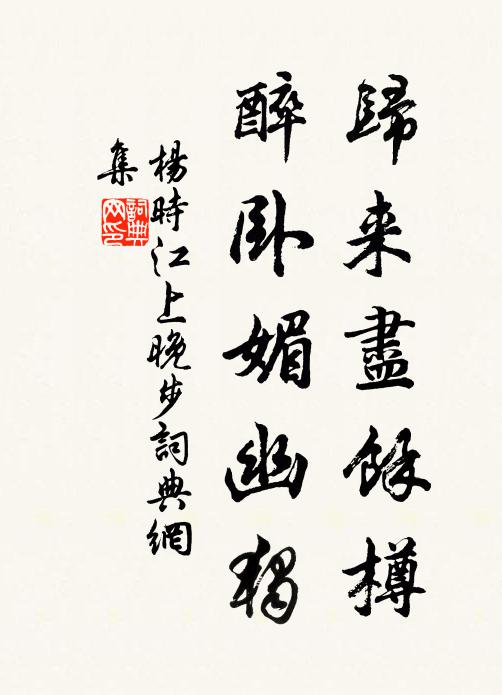 歸来盡餘樽
醉卧媚幽獨
楊時江上晚步詞典網
集
詞典網印